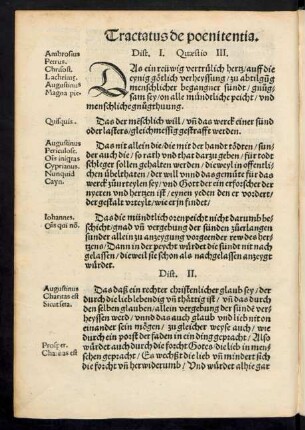 Tractatus de poenitentia.
Dist. I. Quæstio III.
Ambrosius
Petrus.
Chrisost.
Augustinus
Magna pie.
DAs ein rewig vertrülich hertz/auff die
eynig götlich verheyssung/zu abtilgũg
menschlicher begangner sünd/gnůg-
sam sey/on alle mündtliche peicht/vnd
menschlich gnůgthuung.
Quisquis.
Das der menschlich will/vñ das werck einer sünd
oder lasters/gleichmessig gestrafft werden.
Augustinus
Periculose.
Cyprianus.
Nunquid
Cayn.
Das nit allein die die mit der handt tödten/sun-
der auch die/so rath vnd that dar zu geben/für todt
schleger sollen gehalten werden/die weyl in öffentli-
chen übelthaten/der will vnnd das gestalt der werck
zů urteylen sey/vnd Gott der ein erforscher der
nyeren vnd hertzen ist/eynen yeden den er vorder-
der gestalt vrteylt/wie er jn findet/
Iohannes.
Das die mündtlich orenpeicht nicht darumb be-
schicht/gnad vñ vergebung der sünden zů erlangen
sunder allein zu anzeygung vorgeender rew des her-
tzens/Dann in der peycht würdt die sünd nit nach
gelassen/die weil sie schon als nachgelassen anzeygt
würdet.
Dist. II.
Augustinus
Charitas est
Das daß ein rechter christenlicher glaub sey/der
durch die lieb lebendig vñ thättig ist/vñ das durch
den selben glauben/allein vergebung der sünd ver-
heyssen werd/vnnd das auch glaub vñ lieb nit on
einander sein mögen/zu gleicher weyß auch/wie
durch ein porst der faden in ein ding gepracht/Also
würdet auch durch die forcht Gotes/die lieb in men-
Prosper.
Charitas est
schen gepracht/Es wechßt die lieb vñ mindert sich
die forcht vñ herwiderumb/Vnd würdet alhie gar